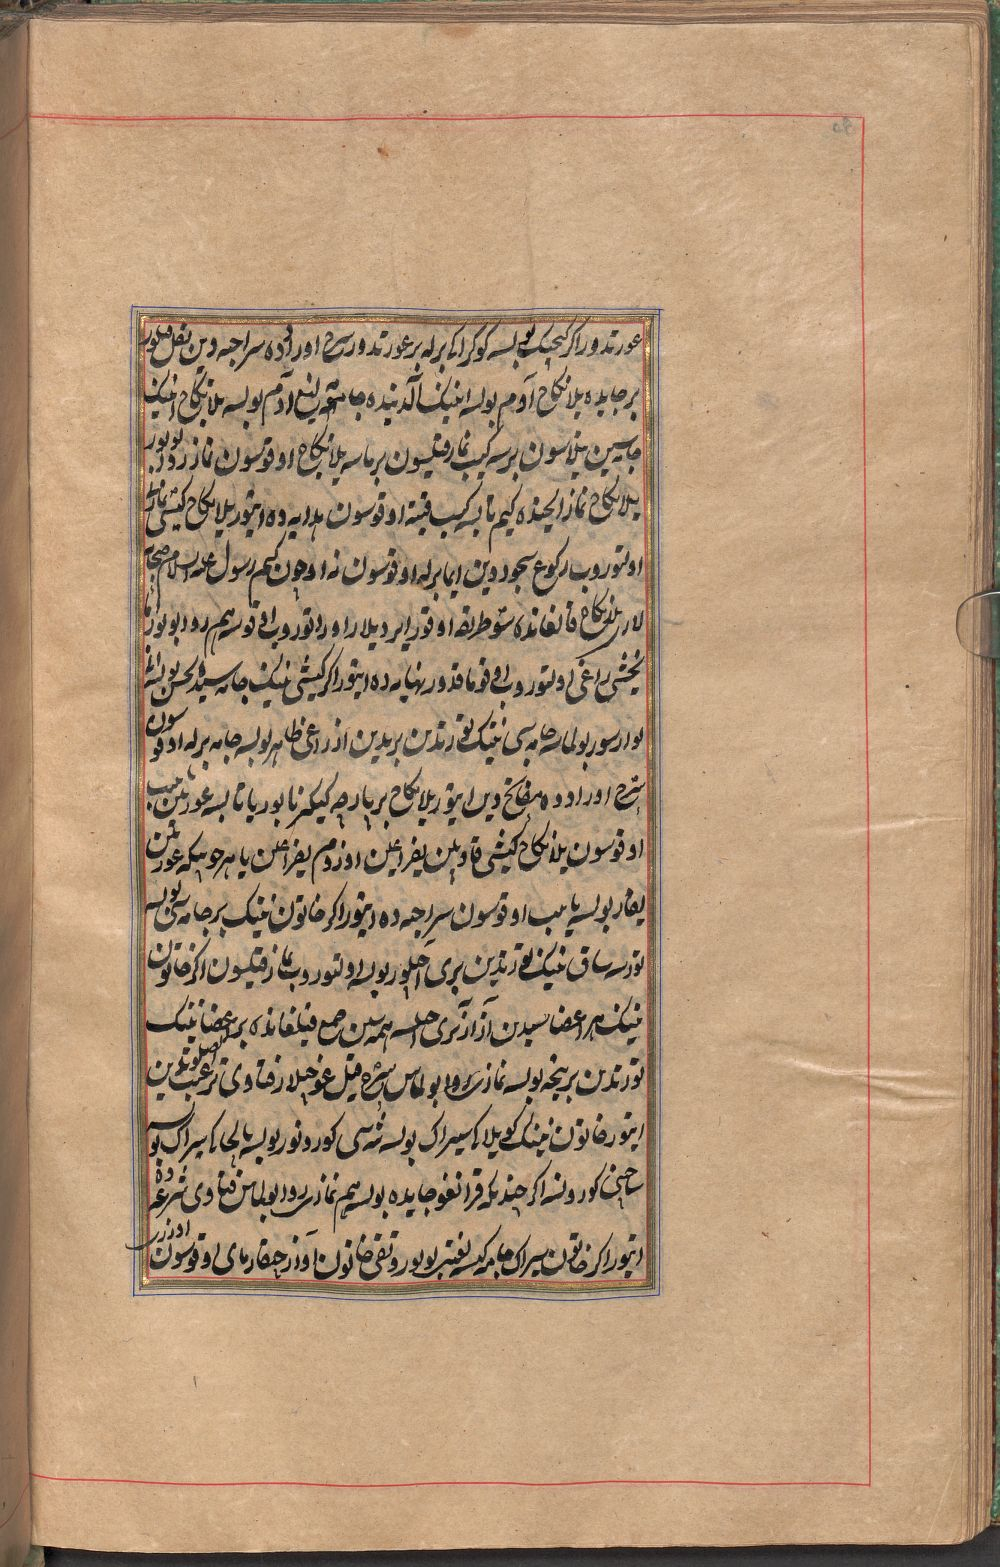 عورتدور اکر کیچیک بولسه کوکراکی برله بر عورتدور شرح اورادده سراجیه دین نقل قیلور
بر جایده یلانکاج آدم بولسه انینک آلدینده جامه لیغ آدم بولسه یلانکاج انینک
جامه سین تیلاسون برسه کیب نماز قیلسون برماسه یلانکاج اوقوسون نماز روا بولور
یلانکاج نماز ایچنده کیم تابسه کیب قیته اوقوسون هدایه ده ایتور یلانکاج کیشی نمازنی
اولتوروب رکوع سجوددین ایما برله اوقوسون نه اوچون کیم رسول علیه السلام صحابه
لاری یلانکاج قالغانده شو طریقه اوقور ایردیلار اورا توروب اوقوسه هم روا بولور
یخشی راغی اولتوروب اوقوماقدور نهایه ده ایتور اکر کیشی نینک جامه سیده نجس بولسه
بولماسه جامه سی نینک تورتدین بریدین آزراغی ظاهر بولسه جامه برله اوقوسون
شرح اوراد ده مفاتح دین ایتور یلانکاج بر پارچه کیکیز تا بوریا تابسه عورتین یاپیب
اوقوسون یلانکاج کیشی قاویلن یفراغیلن اوزوم یفراغلن یا هر چیزیکه عورتین
یفار بولسه یاپیب اوقوسون سراجیه ده ایتور اکر خاتون نینک بر جامه سی بولسه
تورسه ساق نینک تورتدین بری آچیلور بولسه اولتوروب نماز قیلسون اکر خاتون
نینک هر اعضاسیدین آز آز نری آچیلسه همه سین جمع قیلغانده بر اعضا نینک
تورتدین بریچه بولسه نمازی روا بولماس شرح قیلغوچیلار فتاوی ترغیب الصلوة دین
ایتور خاتون نینک کویلاکی سیراک بولسه تنه سی کورونور بولسه یا لچاکی سیراک بولسه
ساچی کورونسه اکر چندیکه قرانغو جایده بولسه هم نمازی روا بولماس فتاوی شرعه ده
ایتور اکر خاتون سیراک جامه کیسه لغنتی بولور و تقی خاتون آوازی چیقارمای اوقوسون
اوزری